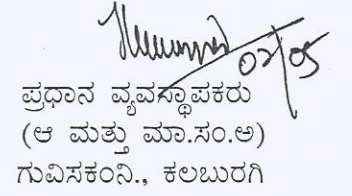 02/05
ಪ್ರಧಾನ ವ್ಯವಸ್ಥಾಪಕರು
(ಆ ಮತ್ತು ಮಾ.ಸಂ.ಅ)
ಗುವಿಸಕಂನಿ., ಕಲಬುರಗಿ